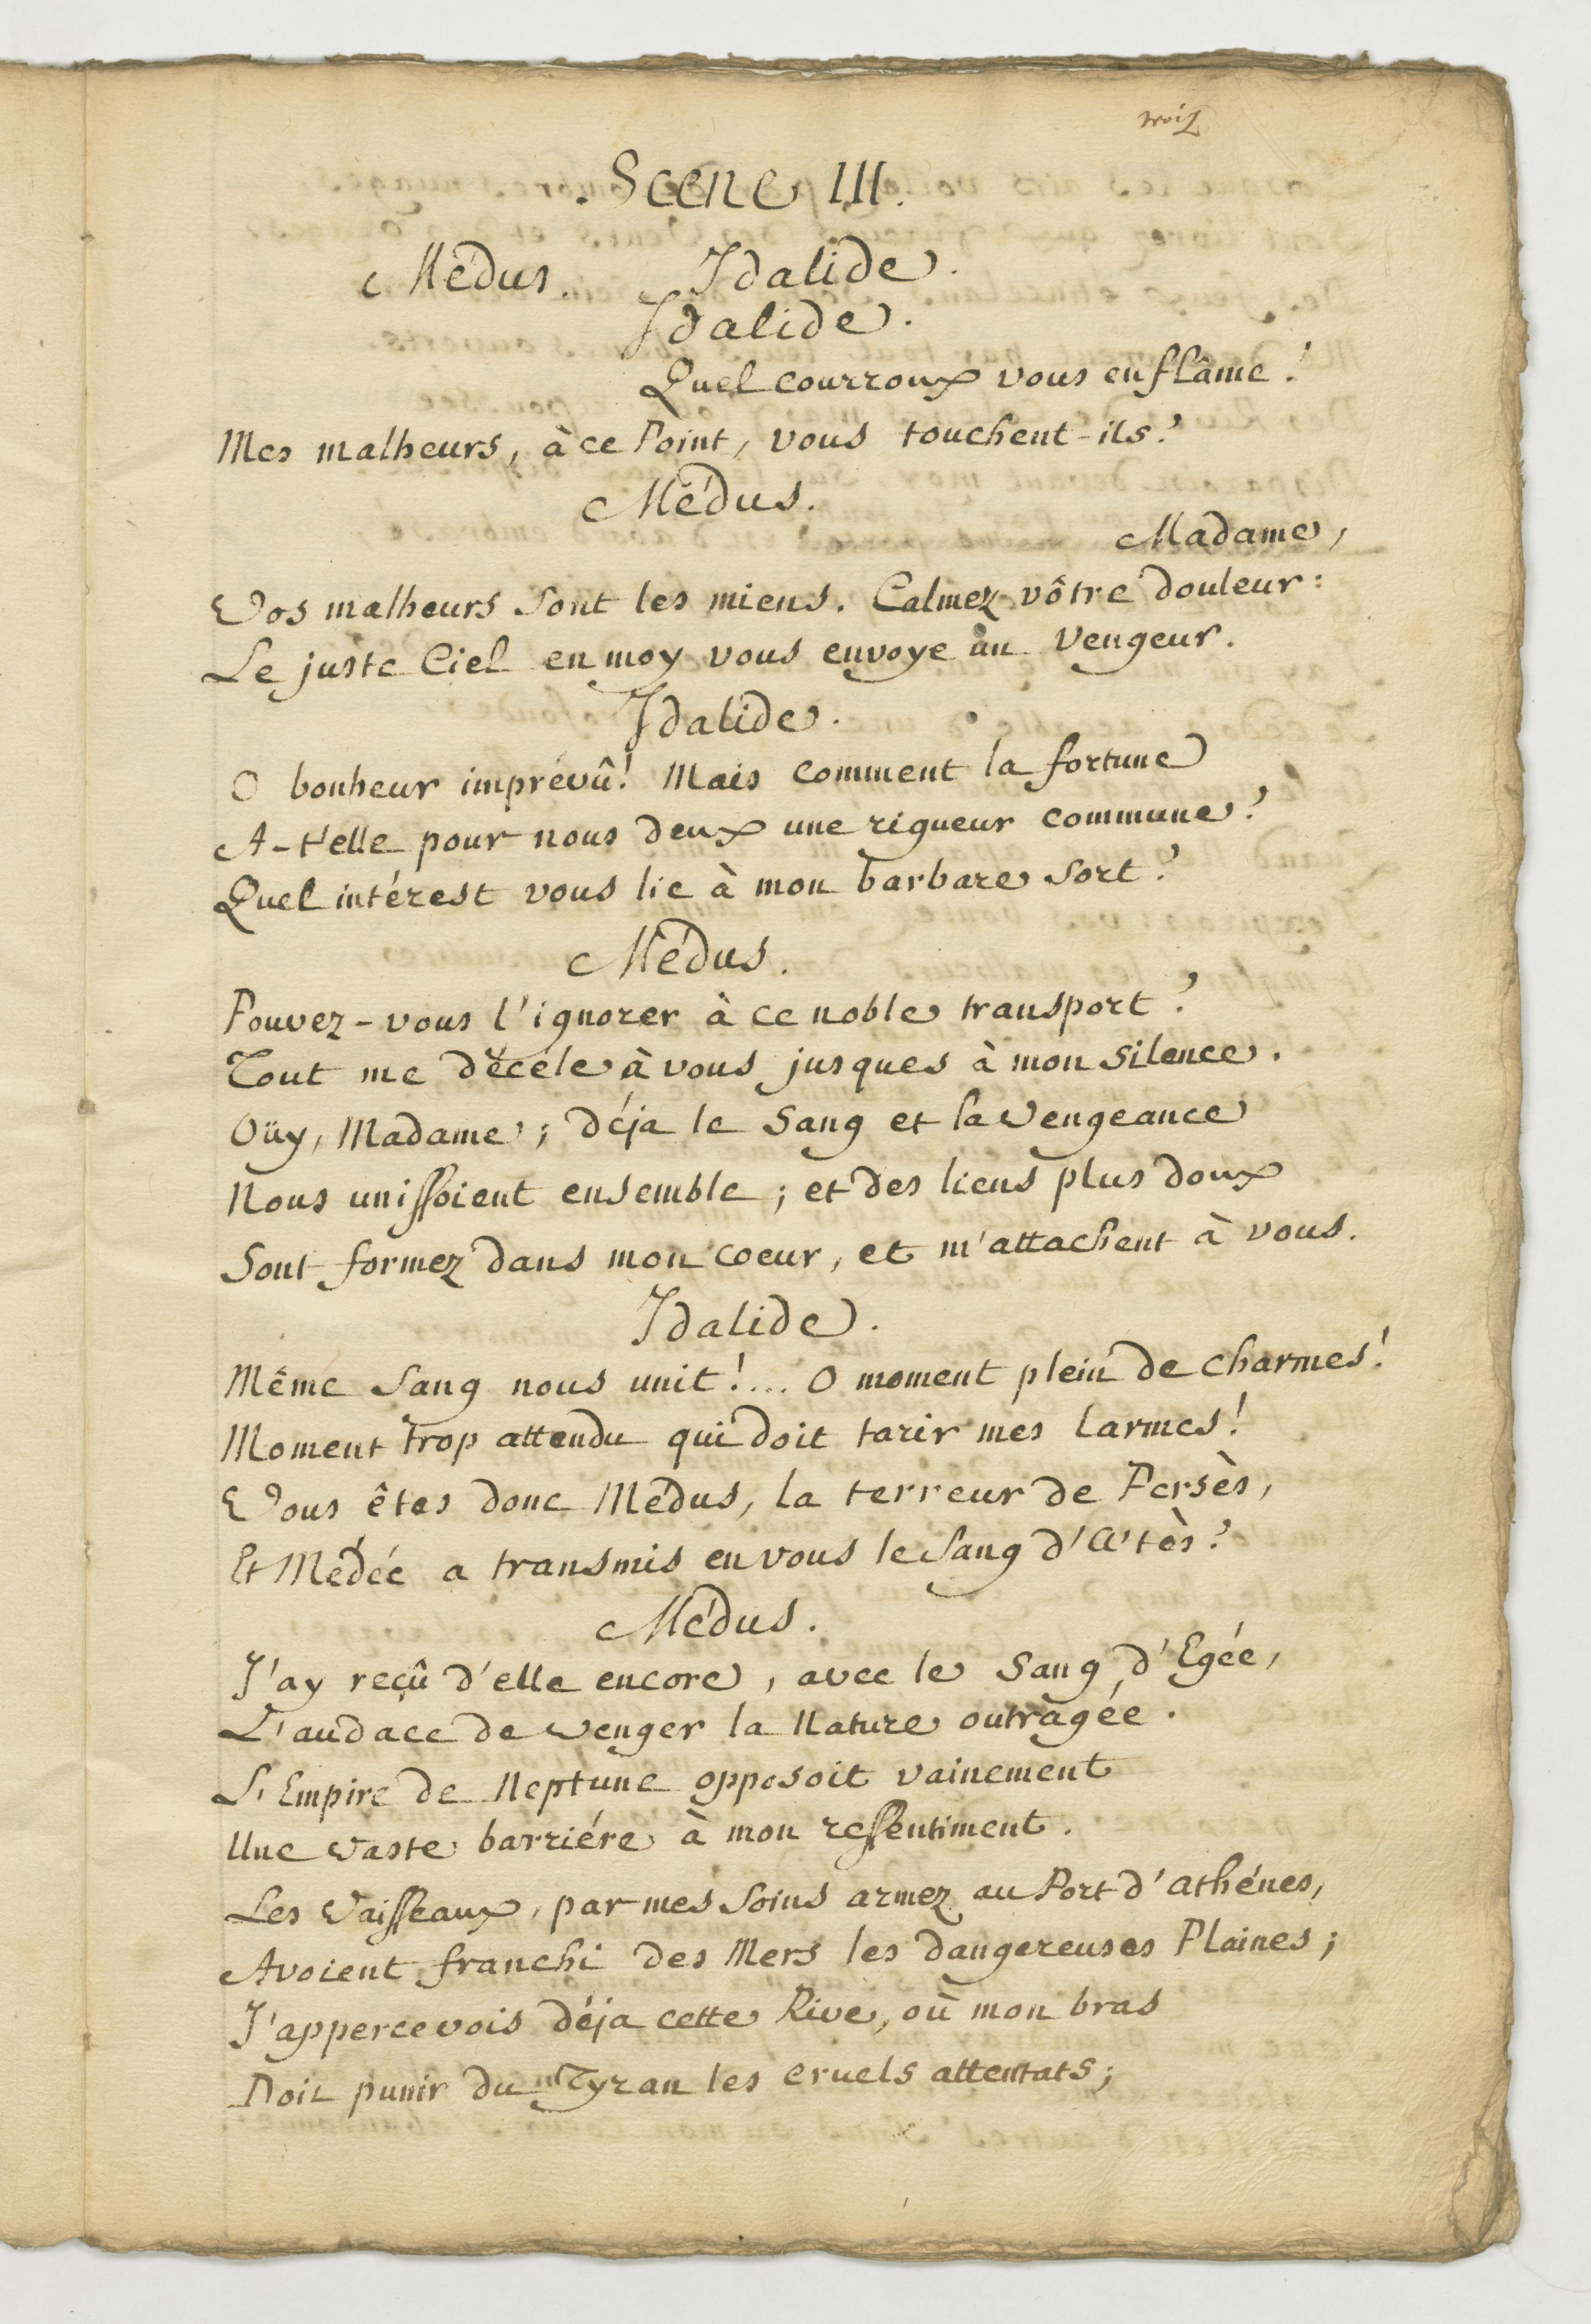 troiz
Scene III.
Médus. Idalide.
Idalide.
Quel courroux vous enflâme!
Mes malheurs, à ce Point, vous touchent-ils?
Médus.
Madame,
Vos malheurs sont les miens. Calmez vôtre douleur:
Le juste Ciel en moy vous envoye un Vengeur.
Idalide.
O bonheur imprévû! Mais comment la fortune
A-t'elle pour nous deux une rigueur commune?
Quel intérest vous lie à mon barbare sort?
Médus.
Pouvez-vous l'ignorer à ce noble transport?
Tout me décéle à vous jusques à mon silence.
Oüy, Madame; déja le Sang et la Vengeance
Nous unissoient ensemble; et des liens plus doux
Sont formez dans mon coeur, et m'attachent à vous.
Idalide.
Même Sang nous unit!... O moment plein de charmes!
Moment trop attendu qui doit tarir mes larmes!
Vous êtes donc Médus, la terreur de Persès,
Et Médée a transmis en vous le Sang d'Æetès?
Médus.
J'ay reçû d'elle encore, avec le Sang d'Egée,
L'audace de venger la Nature outragée.
L'Empire de Neptune opposoit vainement
Une vaste barriére à mon ressentiment.
Les Vaisseaux, par mes Soins armez au Port d'athénes,
Avoient franchi des Mers les dangereuses Plaines;
J'appercevois déja cette Rive, où mon bras
Doit punir du Tyran les cruels attentats;